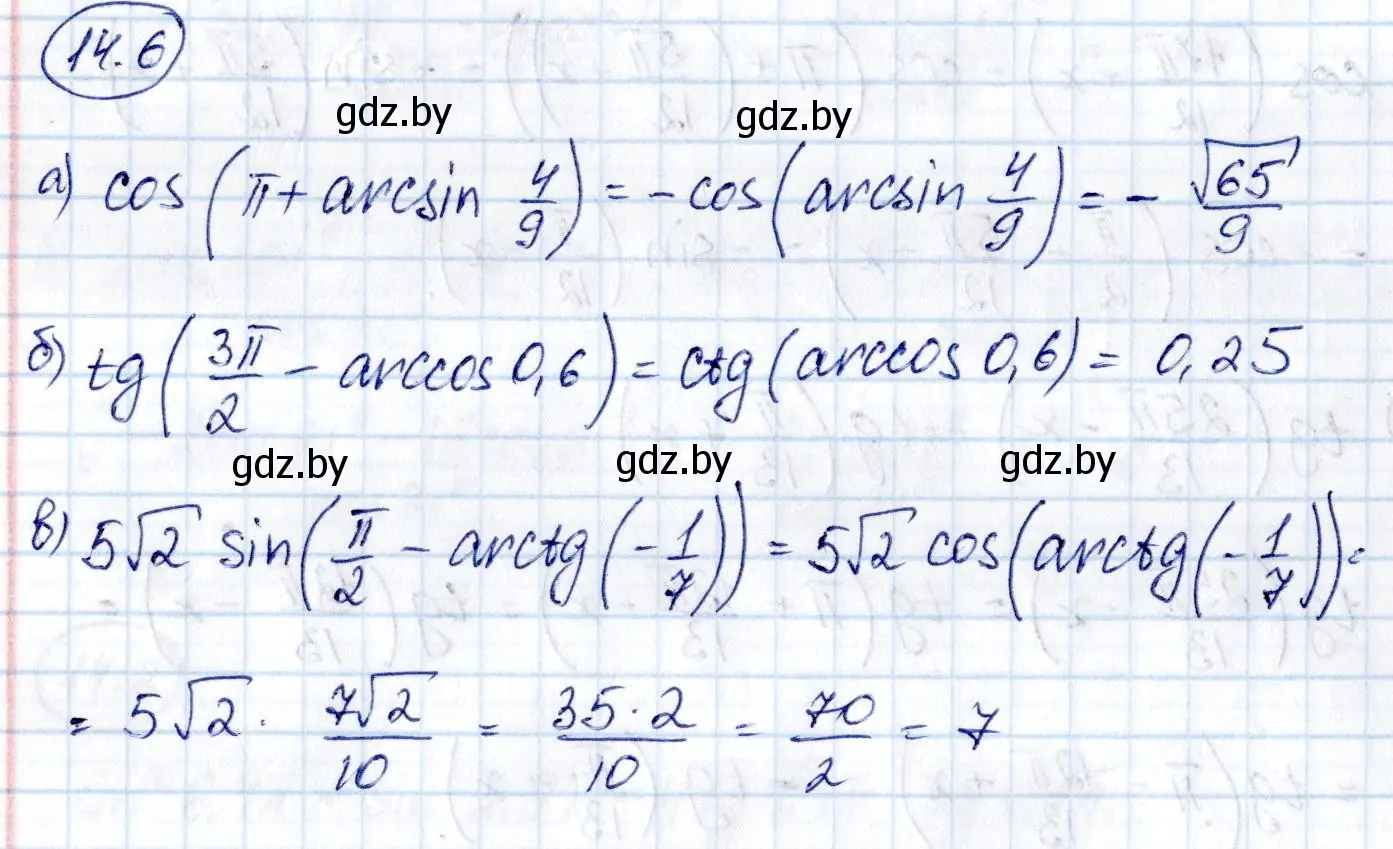 14.6
gdz.by gdz.by
а) cos(π + arcsin 4/9) = -cos(arcsin 4/9) = - √65/9
б) tg(3π/2 - arccos 0,6) = ctg(arccos 0,6) = 0,25
gdz.by gdz.by gdz.by
в) 5√2 sin(π/2 - arctg(-1/7)) = 5√2 cos(arctg(-1/7)) =
= 5√2 · 7√2/10 = 35·2/10 = 70/2 = 7